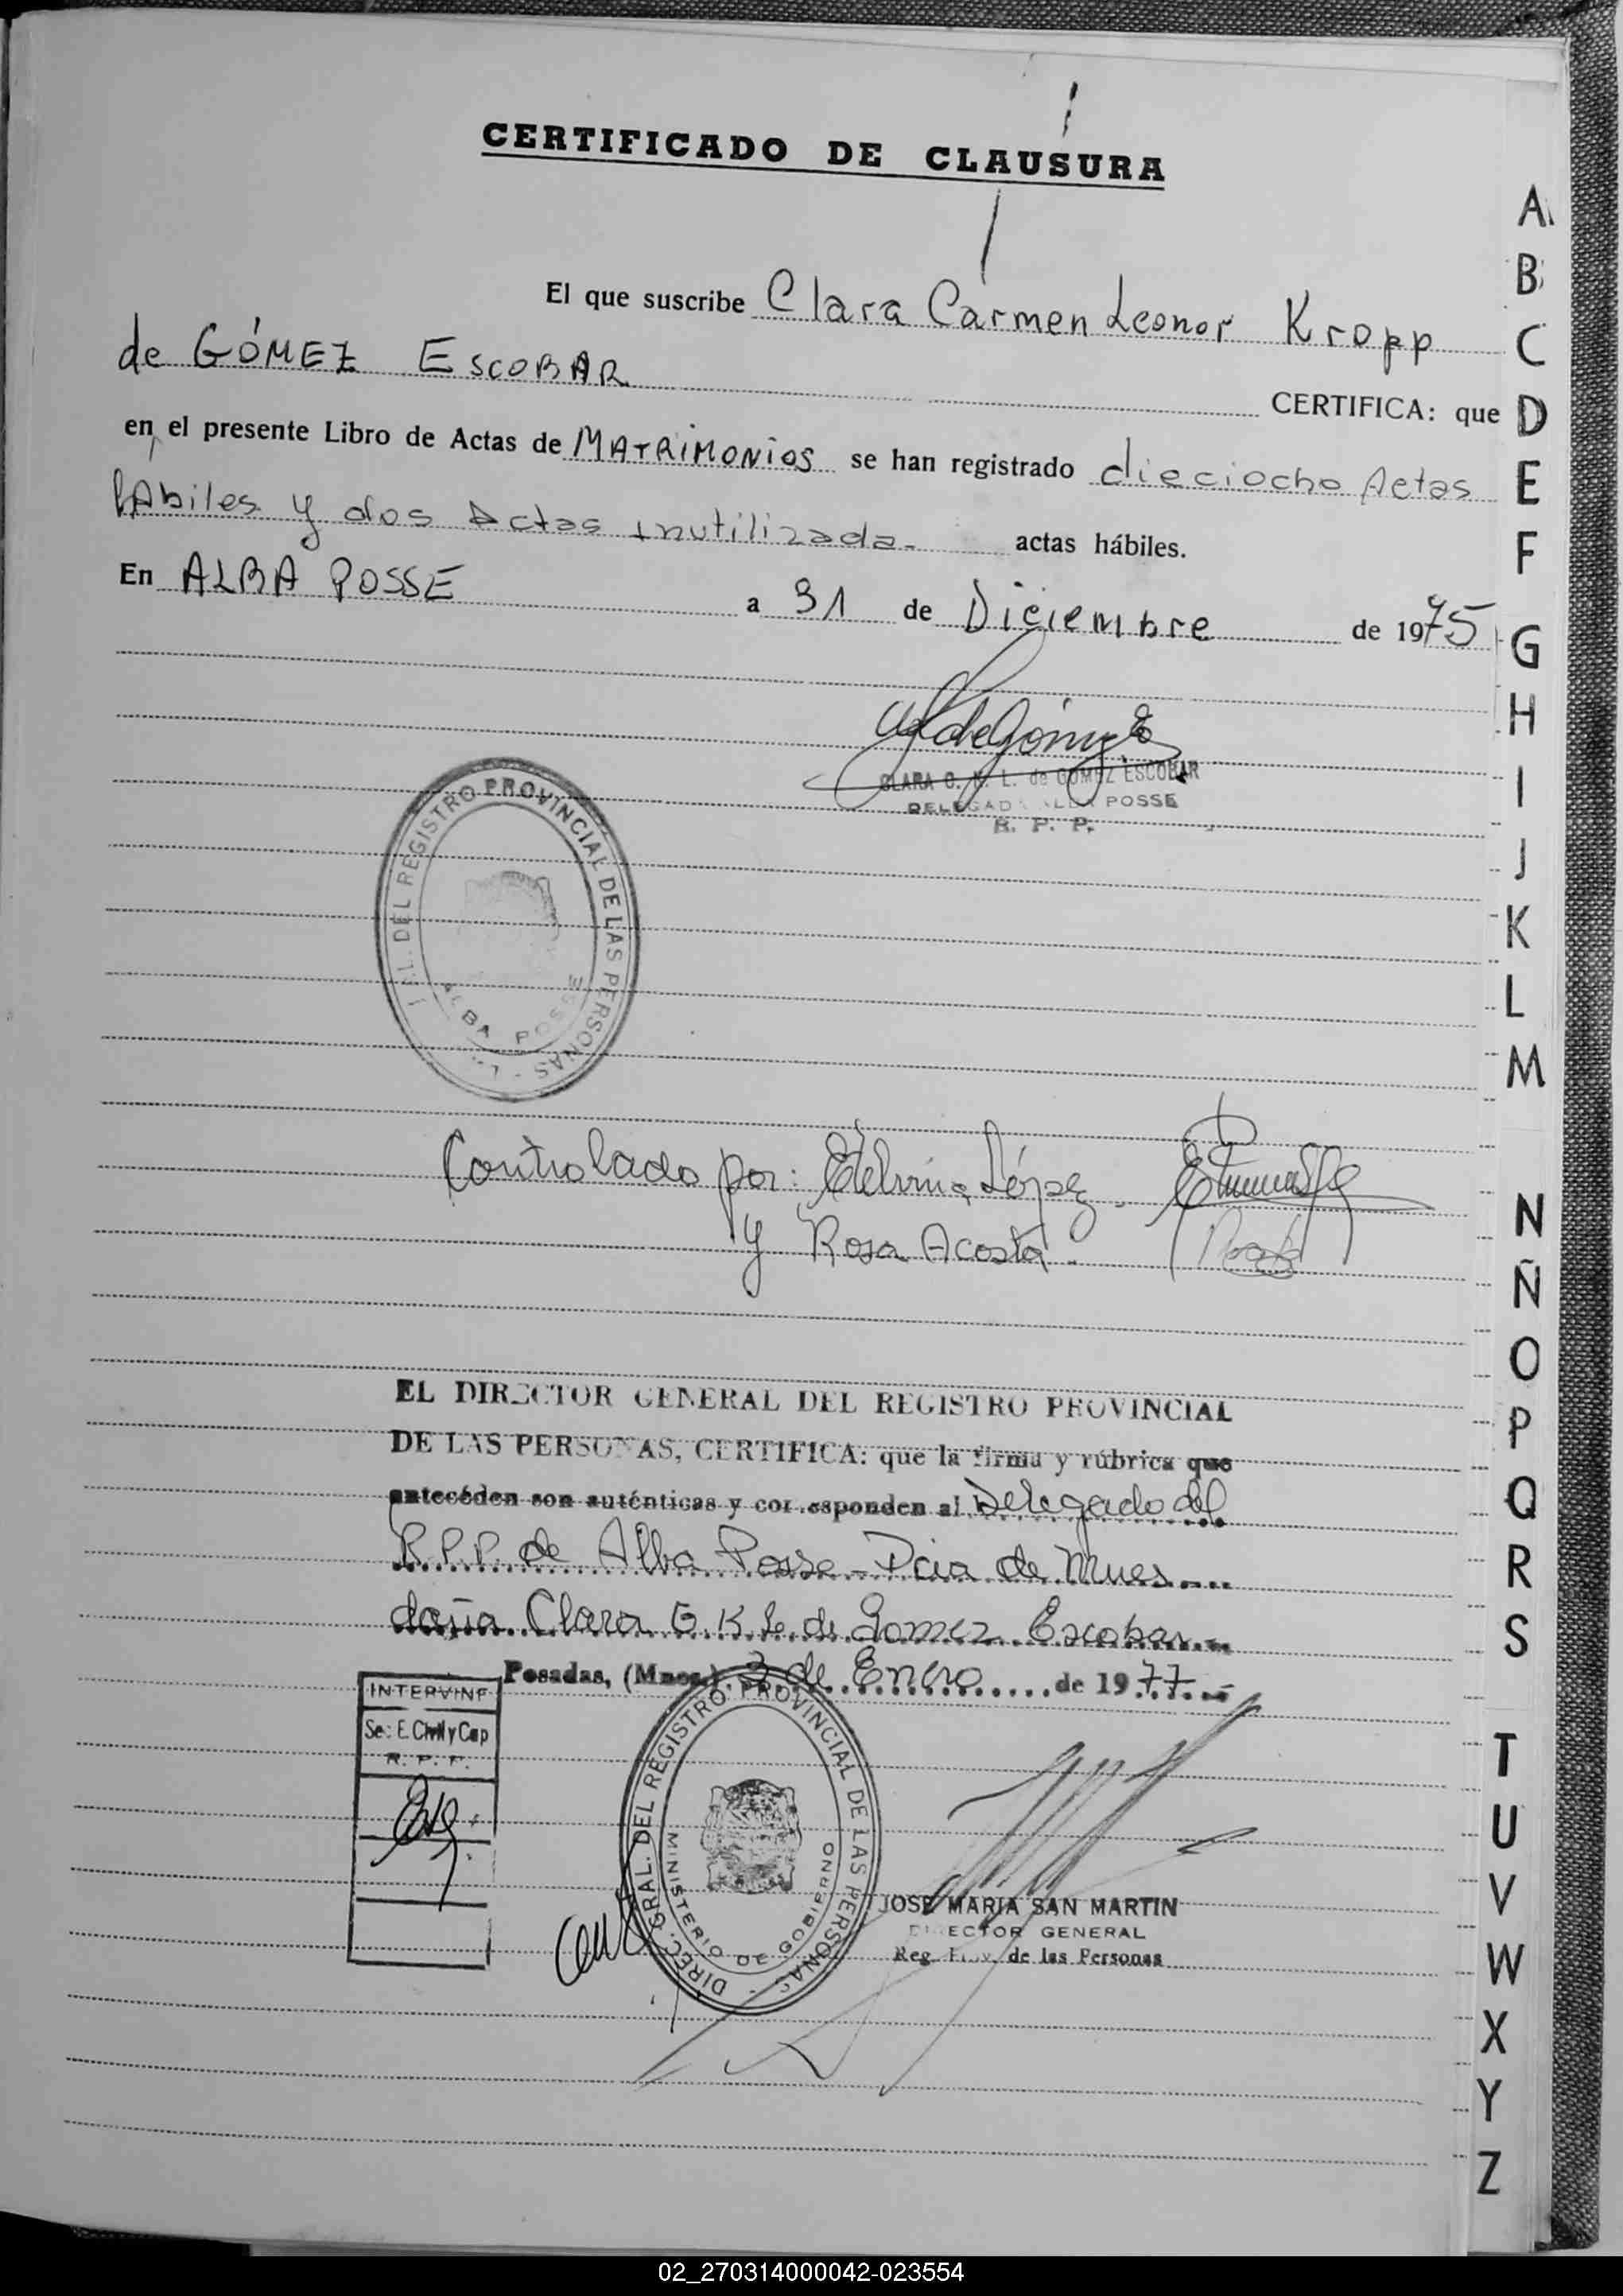 CERTIFICADO DE CLAUSURA
El que suscribe Clara Carmen Leonor Kropp
de GÓMEZ ESCOBAR CERTIFICA: que
en el presente Libro de Actas de MATRIMONIOS se han registrado dieciocho Actas
hAbiles y dos Actas Inutilizada. actas hábiles.
En ALBA POSSE a 31 de Diciembre de 1975
CLARA C. K. L. de GOMEZ ESCOBAR
DELEGADA ALBA POSSE
R. P. P.
DEL REGISTRO PROVINCIAL DE LAS PERSONAS
ALBA POSSE
Controlado por: Etelvina López.
y Rosa Acosta.
EL DIRECTOR GENERAL DEL REGISTRO PROVINCIAL
DE LAS PERSONAS, CERTIFICA: que la firma y rúbrica que
anteceden son auténticas y corresponden al Delegado del
R.P.P. de Alba Posse - Pcia de Mnes
doña Clara C. K. L. de Gomez Escobar
Posadas, (Mnes.) 3 de Enero de 1977
INTERVINE
Sec. E. Civil y Cap
R. P. P.
DIREC. GRAL. DEL REGISTRO PROVINCIAL DE LAS PERSONAS
MINISTERIO DE GOBIERNO
JOSE MARIA SAN MARTIN
DIRECTOR GENERAL
Reg. Prov. de las Personas
A
B
C
D
E
F
G
H
I
J
K
L
M
N
Ñ
O
P
Q
R
S
T
U
V
W
X
Y
Z
02_270314000042-023554